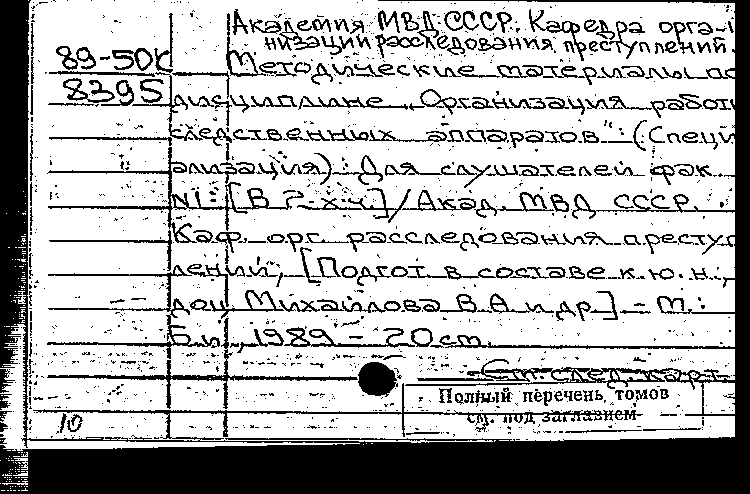 Академия МВД СССР. Кафедра орга-
низации расследования преступлений.
89-50К
Методические материалы по
8395
дисциплине „Организация работы
следственных аппаратов": (Специ
ализация): Для слушателей фак.
N1: [В 2-х ч.] / Акад. МВД СССР.
Каф. орг. расследования преступ
лений; [Подгот. в составе к.ю.н.,
доц. Михайлова В.А. и др.] – М.:
Б.и., 1989 – 20 см.
См. след. карт.
Полный перечень томов
см. под заглавием
10